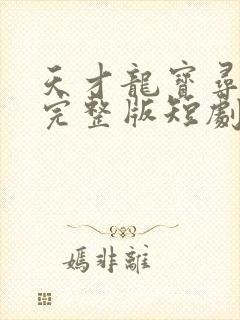 天才龍寶尋
完整版短劇
媽非離